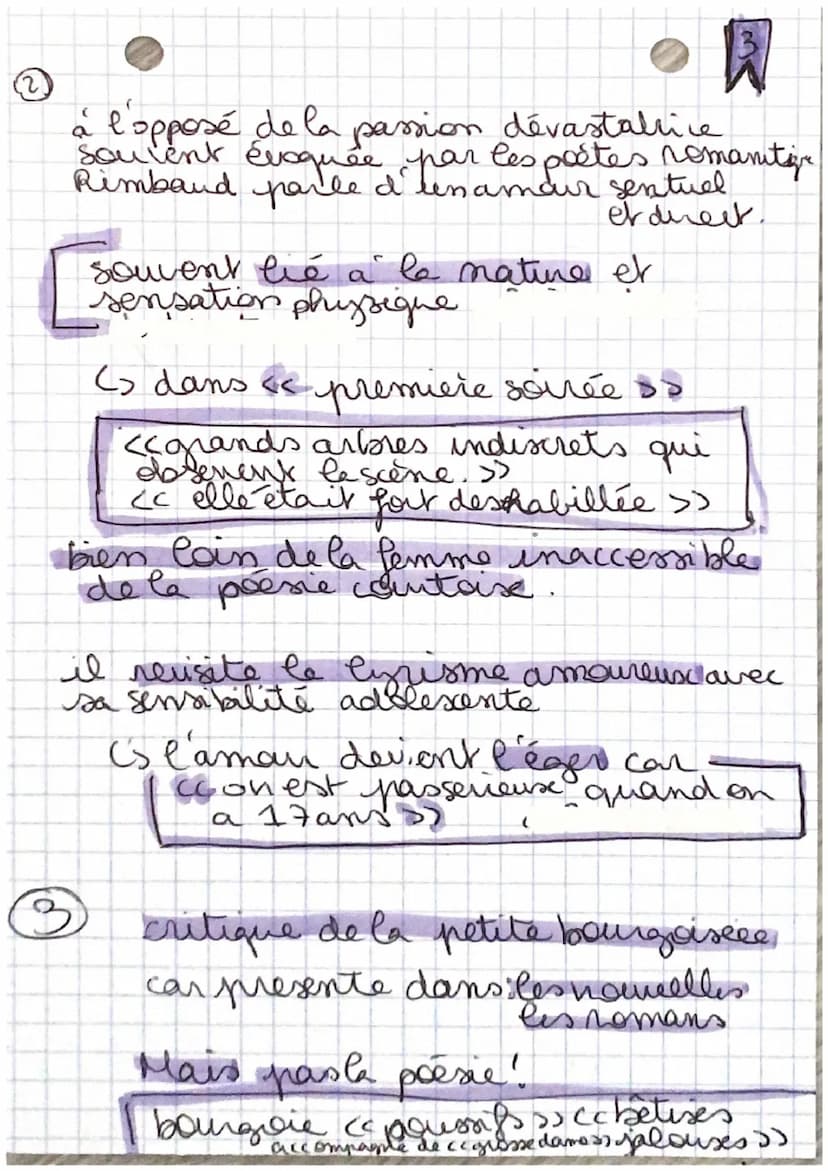 3
2
à l'opposé de la passion dévastatrice
souvent évoquée par les poètes romantiqe
Rimbaud parle d'un amour sentuel
et direct.
souvent lié à la nature et
sensation physique
↳ dans << première soirée >>
<<grands arbres indiscrets qui
observent la scène. >>
<< elle était fort deshabillée >>
bien loin de la femme inaccessible
de la poésie courtoise.
il revisite le lyrisme amoureux avec
sa sensibilité adolescente
↳ l'amour devient léger car
<< on est pas serieux quand on
a 17 ans >>
3
critique de la petite bourgoisiee
car presente dans: les nouvelles
les romans
Mais pas la poésie!
bourgoie << poussifs >> << bêtises
accompagné de << grosse dame >> jalouses >>